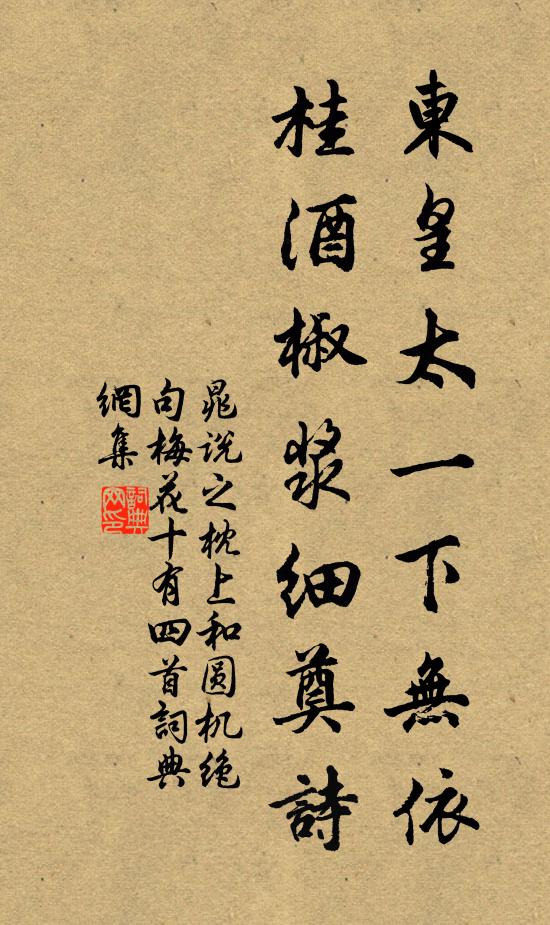 東皇太一下無依
桂酒椒漿細奠詩
晁说之枕上和圆机绝
句梅花十有四首詞典
網集
詞典
网印